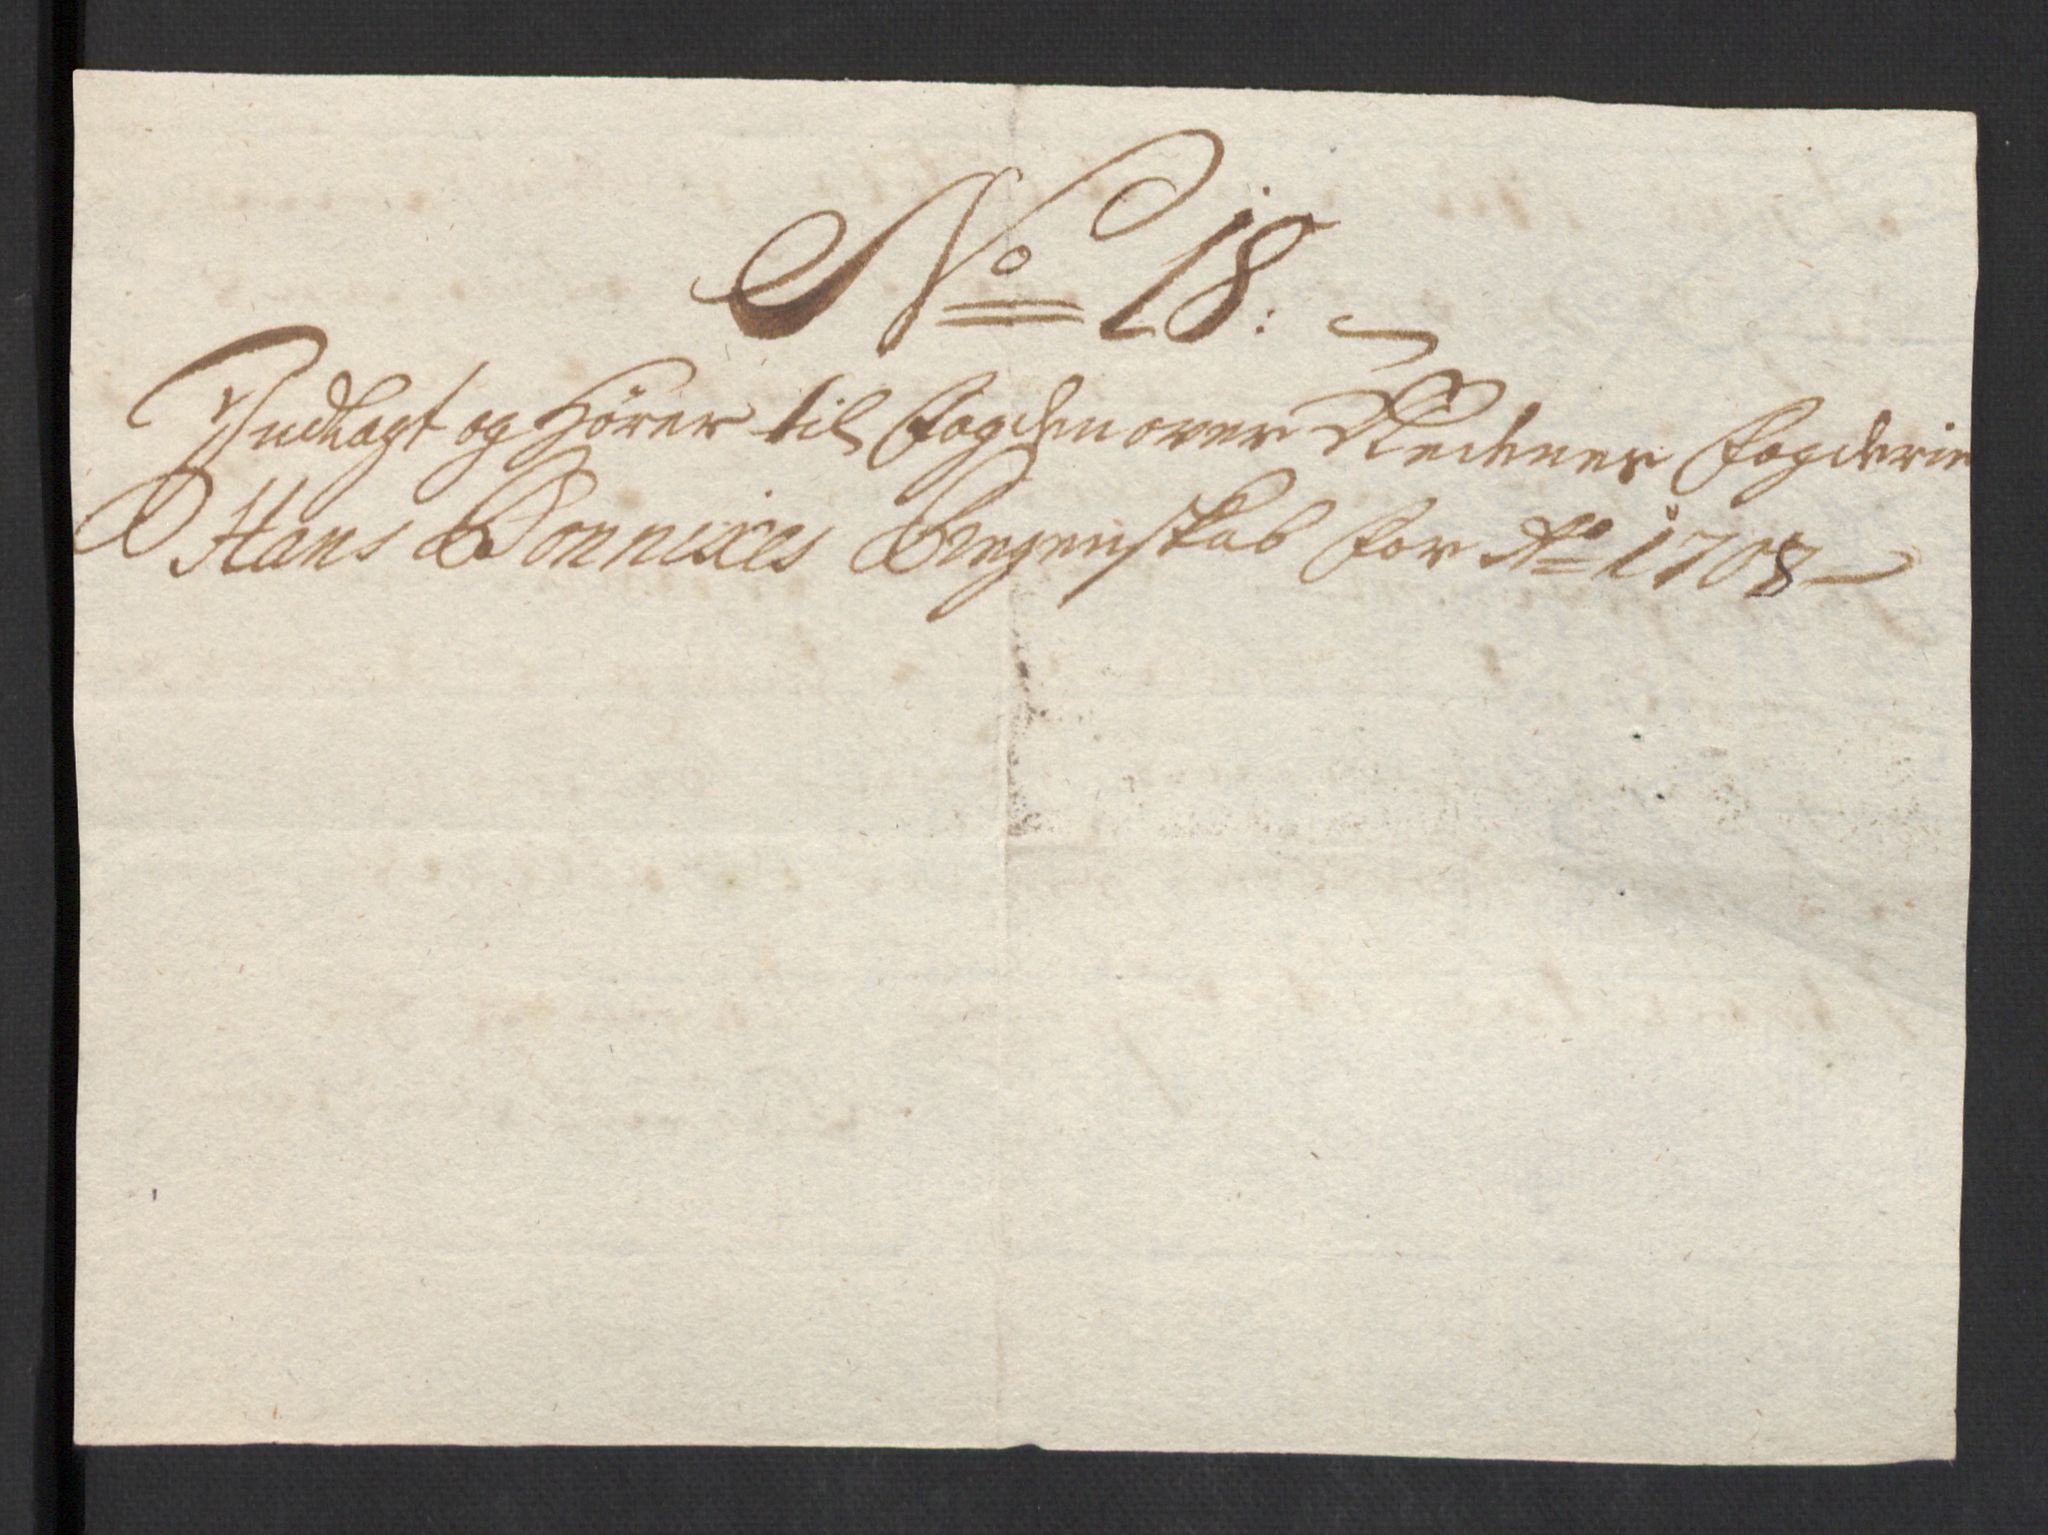 No 18:
Indlagt og hörer til Fogden over Nedenes Fogderie
Hans Bonnixes Regenskab for Ao 1708